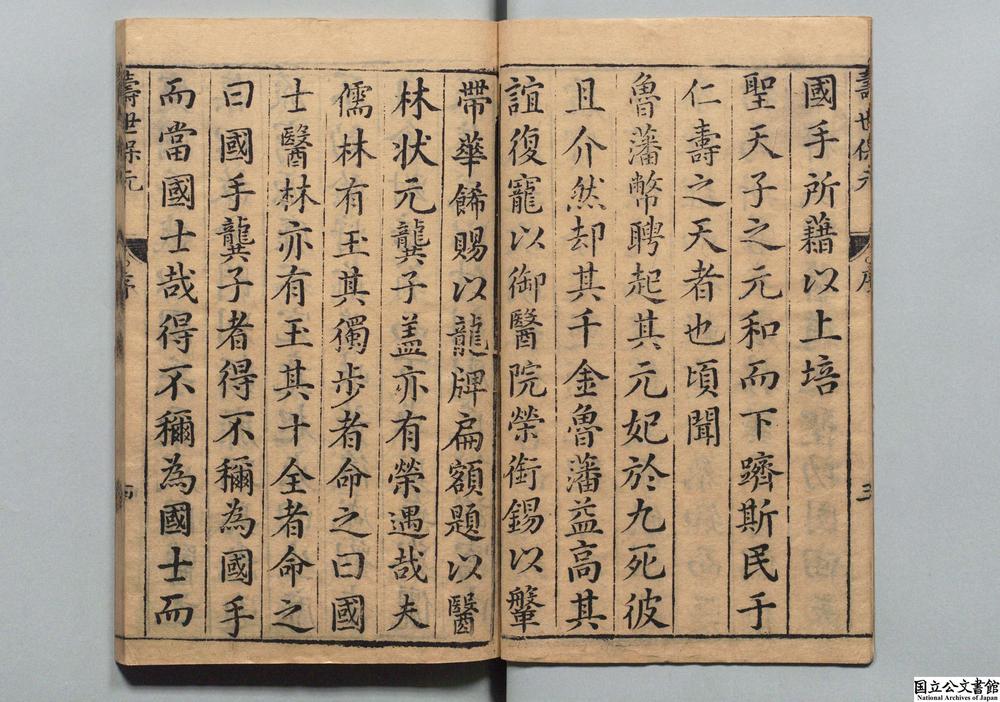 壽世保元
序
三
國手所藉以上培
聖天子之元和而下躋斯民于
仁壽之天者也頃聞
魯藩幣聘起其元妃於九死彼
且介然却其千金魯藩益高其
誼復寵以御醫院榮銜錫以鞶
帶華餙賜以龍牌扁額題以醫
林状元龔子盖亦有榮遇哉夫
儒林有王其獨步者命之曰國
士醫林亦有王其十全者命之
曰國手龔子者得不稱為國手
而當國士哉得不稱為國士而
壽世保元
序
四
国立公文書館
National Archives of Japan